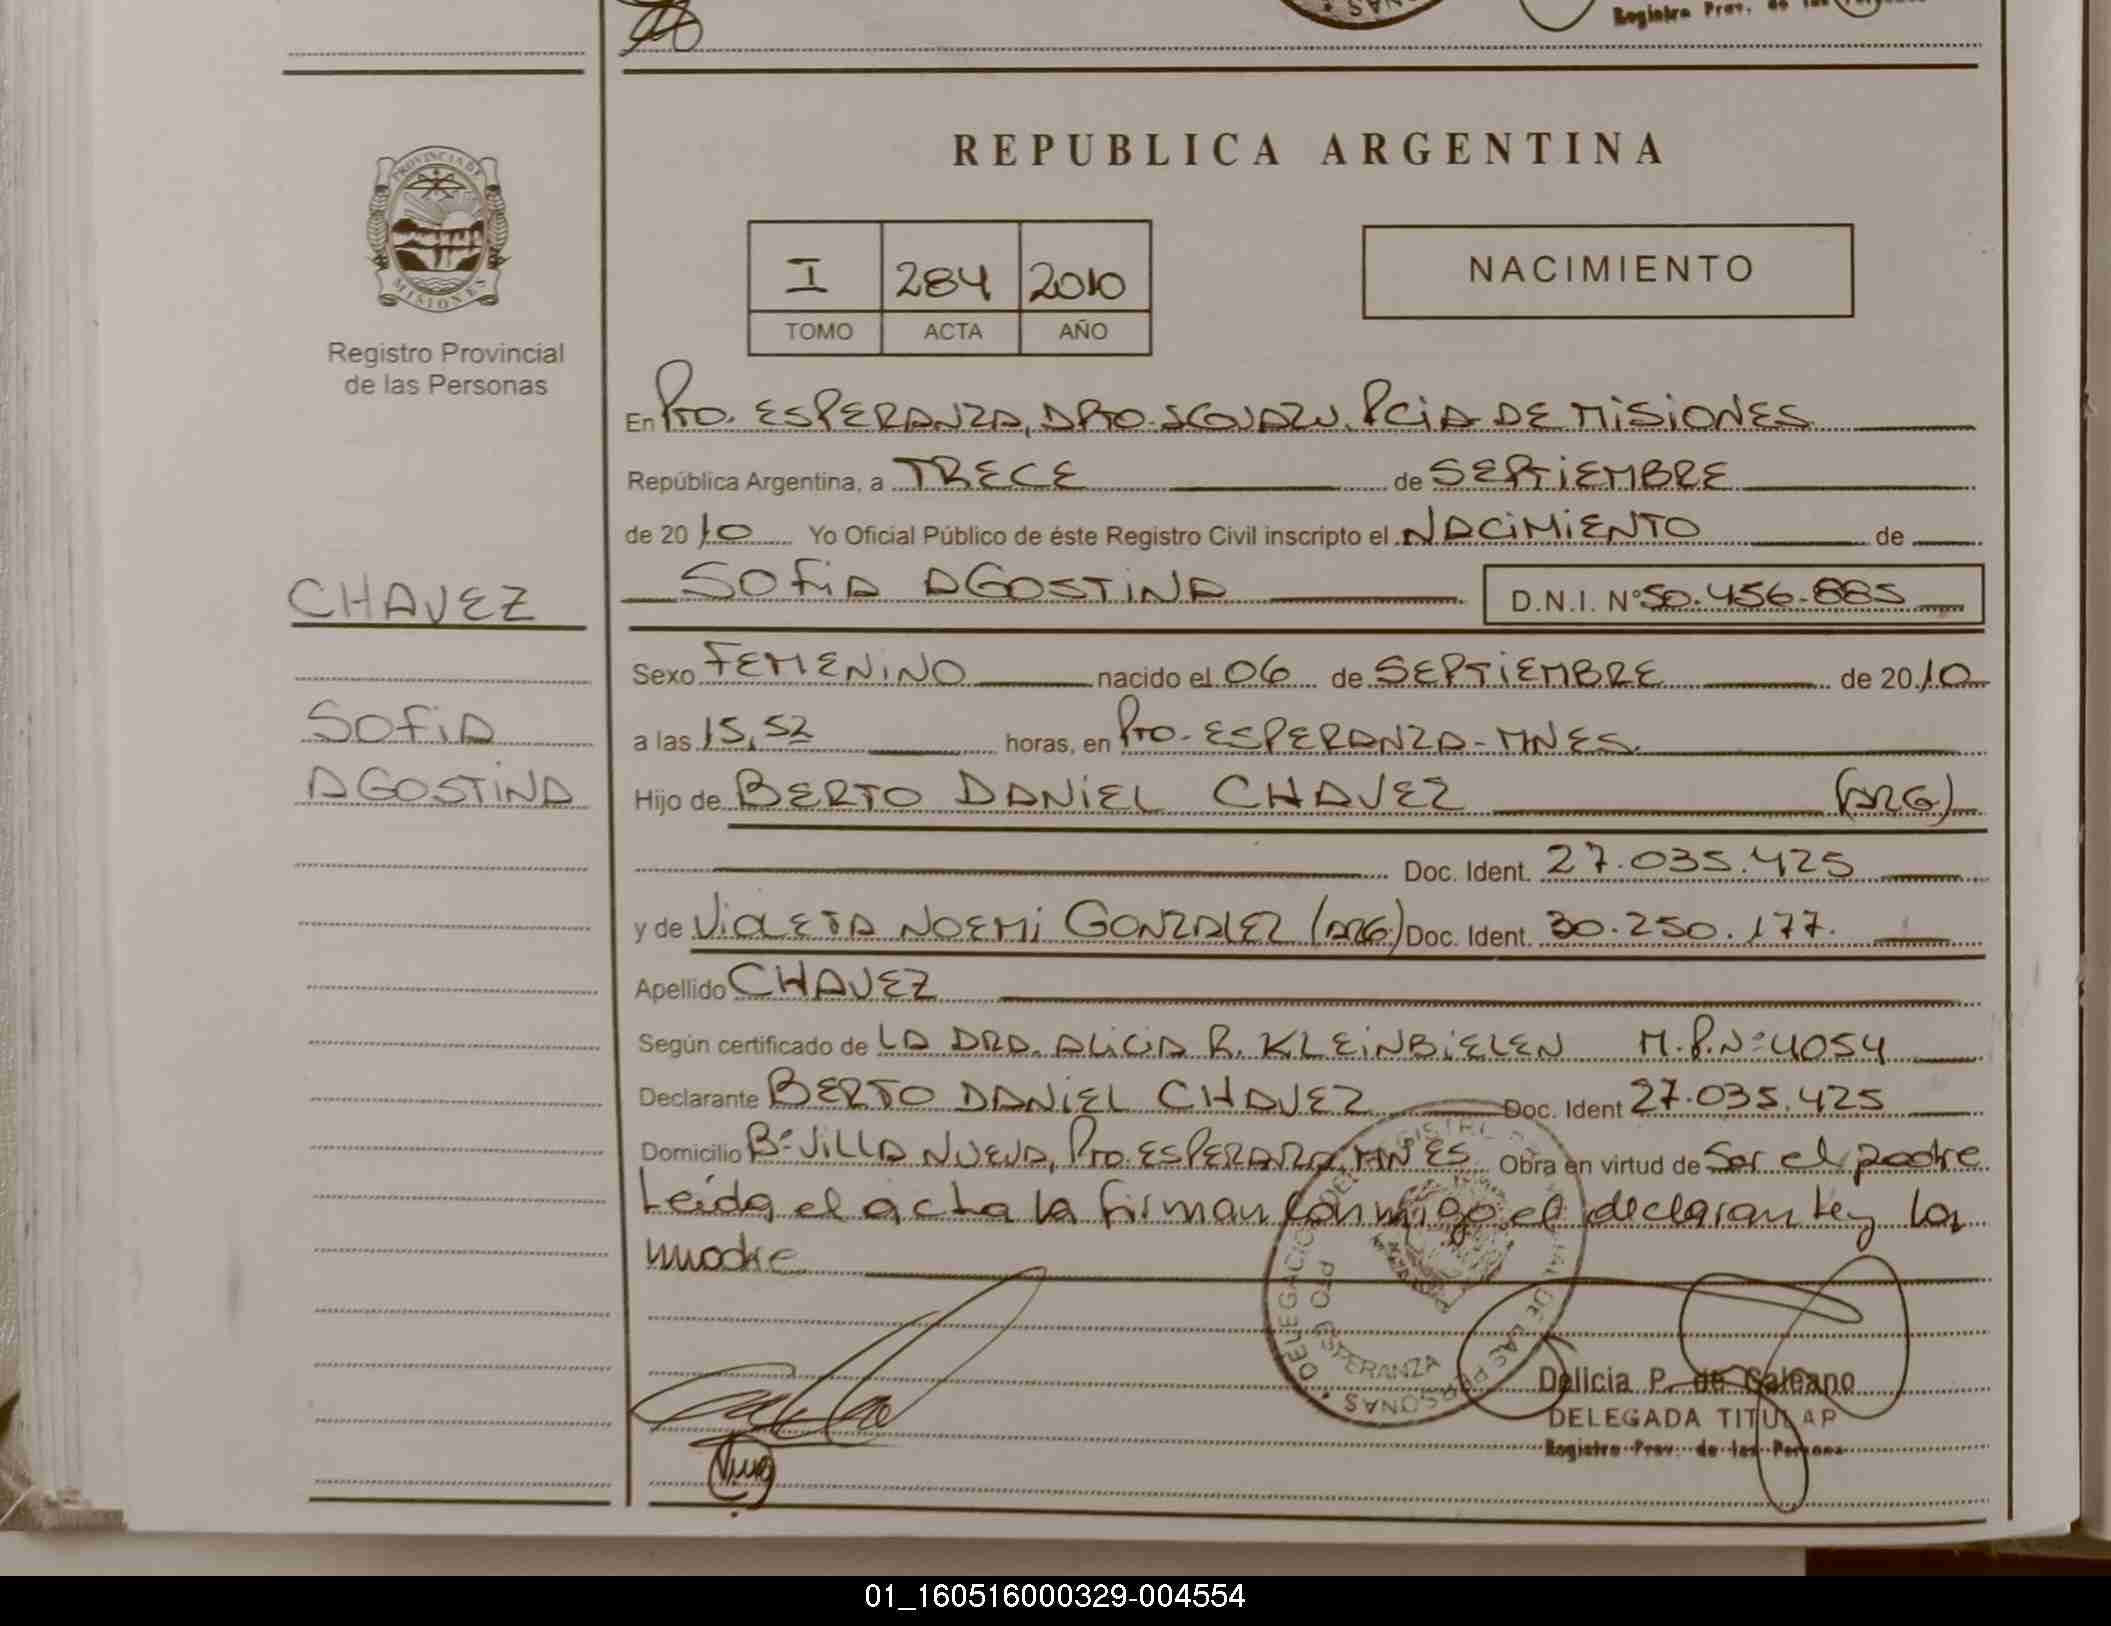 Registro Prov. de las
REPUBLICA ARGENTINA
PROVINCIA DE
MISIONES
Registro Provincial
de las Personas
I 284 2010
TOMO ACTA AÑO
NACIMIENTO
En Pto. ESPERANZA, DPTO. IGUAZU, PCIA DE MISIONES
República Argentina, a TRECE de SEPTIEMBRE
de 2010 Yo Oficial Público de éste Registro Civil inscripto el NACIMIENTO de
CHAVEZ
SOFIA AGOSTINA D.N.I. Nº 50.456.885
Sexo FEMENINO nacido el 06 de SEPTIEMBRE de 2010
SOFIA
a las 15,52 horas, en Pto. ESPERANZA - MNES.
AGOSTINA
Hijo de BERTO DANIEL CHAVEZ (ARG)
Doc. Ident. 27.035.425
y de VIOLETA NOEMI GONZALEZ (ARG.) Doc. Ident. 30.250.177.
Apellido CHAVEZ
Según certificado de LA DRA. ALICIA R. KLEINBIELEN M.P.Nº 4054
Declarante BERTO DANIEL CHAVEZ Doc. Ident 27.035.425
Domicilio Bº VILLA NUEVA, Pto. ESPERANZA, MNES Obra en virtud de Ser el padre
Leida el acta la firman conmigo el declarante y la
madre
DELEGACION DEL REGISTRO DE LAS PERSONAS
PTO ESPERANZA
Delicia P. de Galeano
DELEGADA TITULAR
Registro Prov. de las Persona
01_160516000329-004554